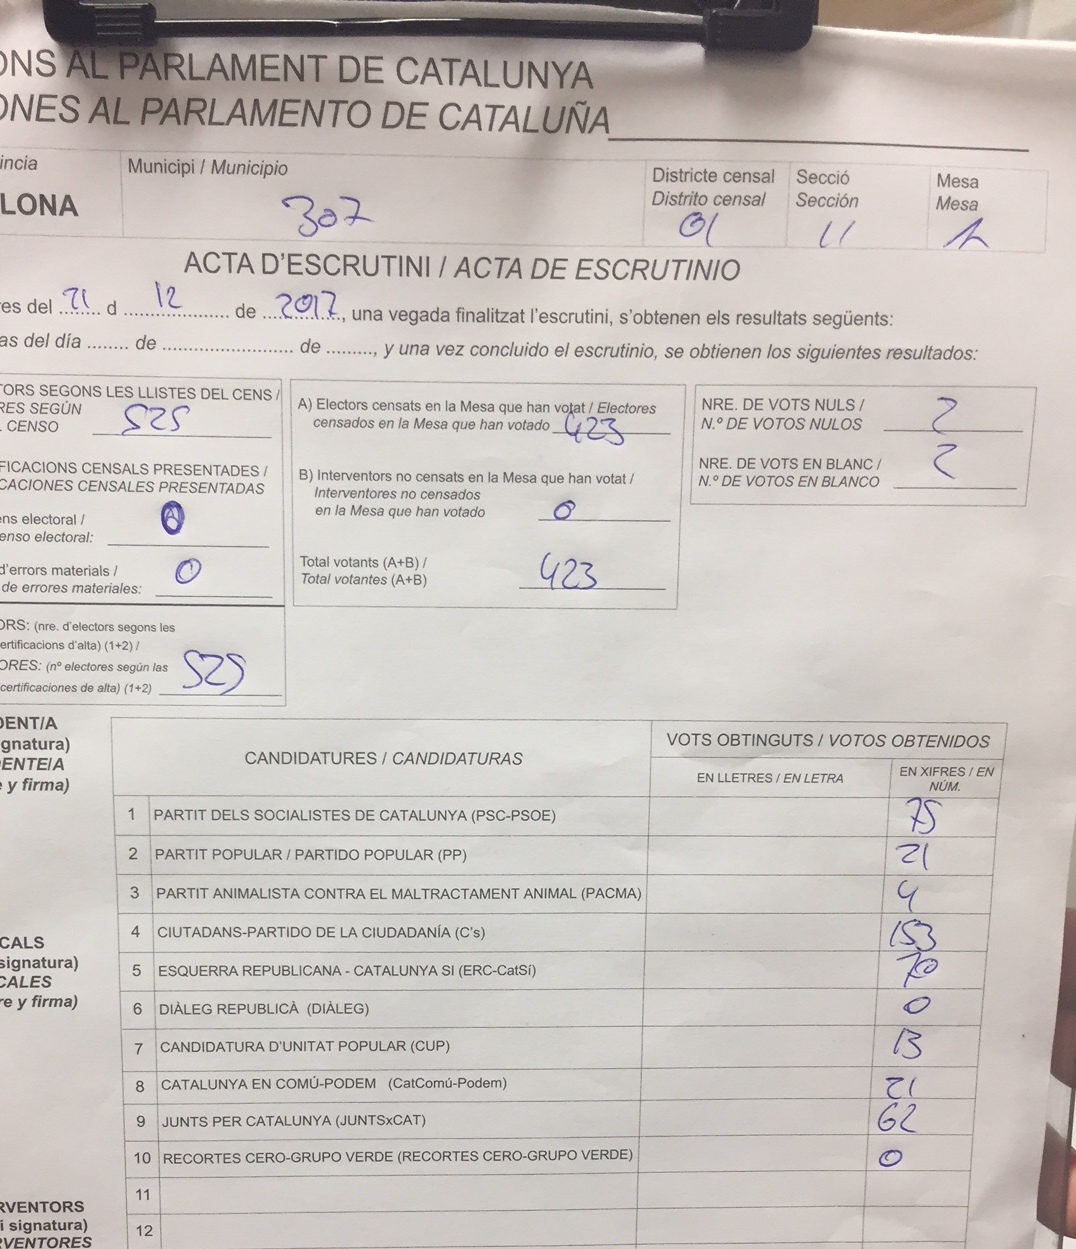 ONS AL PARLAMENT DE CATALUNYA
ONES AL PARLAMENTO DE CATALUÑA
incia
Municipi / Municipio
Districte censal
Distrito censal
Secció
Sección
Mesa
Mesa
LONA
307
01
11
1
ACTA D'ESCRUTINI / ACTA DE ESCRUTINIO
res del 21 d 12 de 2017, una vegada finalitzat l'escrutini, s'obtenen els resultats següents:
as del día ........ de .................... de ........., y una vez concluido el escrutinio, se obtienen los siguientes resultados:
TORS SEGONS LES LLISTES DEL CENS /
RES SEGÚN
CENSO
525
FICACIONS CENSALS PRESENTADES /
CACIONES CENSALES PRESENTADAS
ns electoral /
enso electoral:
0
d'errors materials /
de errores materiales:
0
ORS: (nre. d'electors segons les
ertificacions d'alta) (1+2) /
ORES: (nº electores según las
certificaciones de alta) (1+2)
525
A) Electors censats en la Mesa que han votat / Electores
censados en la Mesa que han votado
423
B) Interventors no censats en la Mesa que han votat /
Interventores no censados
en la Mesa que han votado
0
Total votants (A+B) /
Total votantes (A+B)
423
NRE. DE VOTS NULS /
N.º DE VOTOS NULOS
2
NRE. DE VOTS EN BLANC /
N.º DE VOTOS EN BLANCO
2
DENT/A
gnatura)
DENTE/A
e y firma)
CALS
signatura)
CALES
re y firma)
RVENTORS
i signatura)
RVENTORES
CANDIDATURES / CANDIDATURAS
VOTS OBTINGUTS / VOTOS OBTENIDOS
EN LLETRES / EN LETRA
EN XIFRES / EN
NÚM.
1 PARTIT DELS SOCIALISTES DE CATALUNYA (PSC-PSOE) 75
2 PARTIT POPULAR / PARTIDO POPULAR (PP) 21
3 PARTIT ANIMALISTA CONTRA EL MALTRACTAMENT ANIMAL (PACMA) 4
4 CIUTADANS-PARTIDO DE LA CIUDADANÍA (C's) 153
5 ESQUERRA REPUBLICANA - CATALUNYA SI (ERC-CatSí) 70
6 DIÀLEG REPUBLICÀ (DIÀLEG) 0
7 CANDIDATURA D'UNITAT POPULAR (CUP) 13
8 CATALUNYA EN COMÚ-PODEM (CatComú-Podem) 21
9 JUNTS PER CATALUNYA (JUNTSxCAT) 62
10 RECORTES CERO-GRUPO VERDE (RECORTES CERO-GRUPO VERDE) 0
11
12